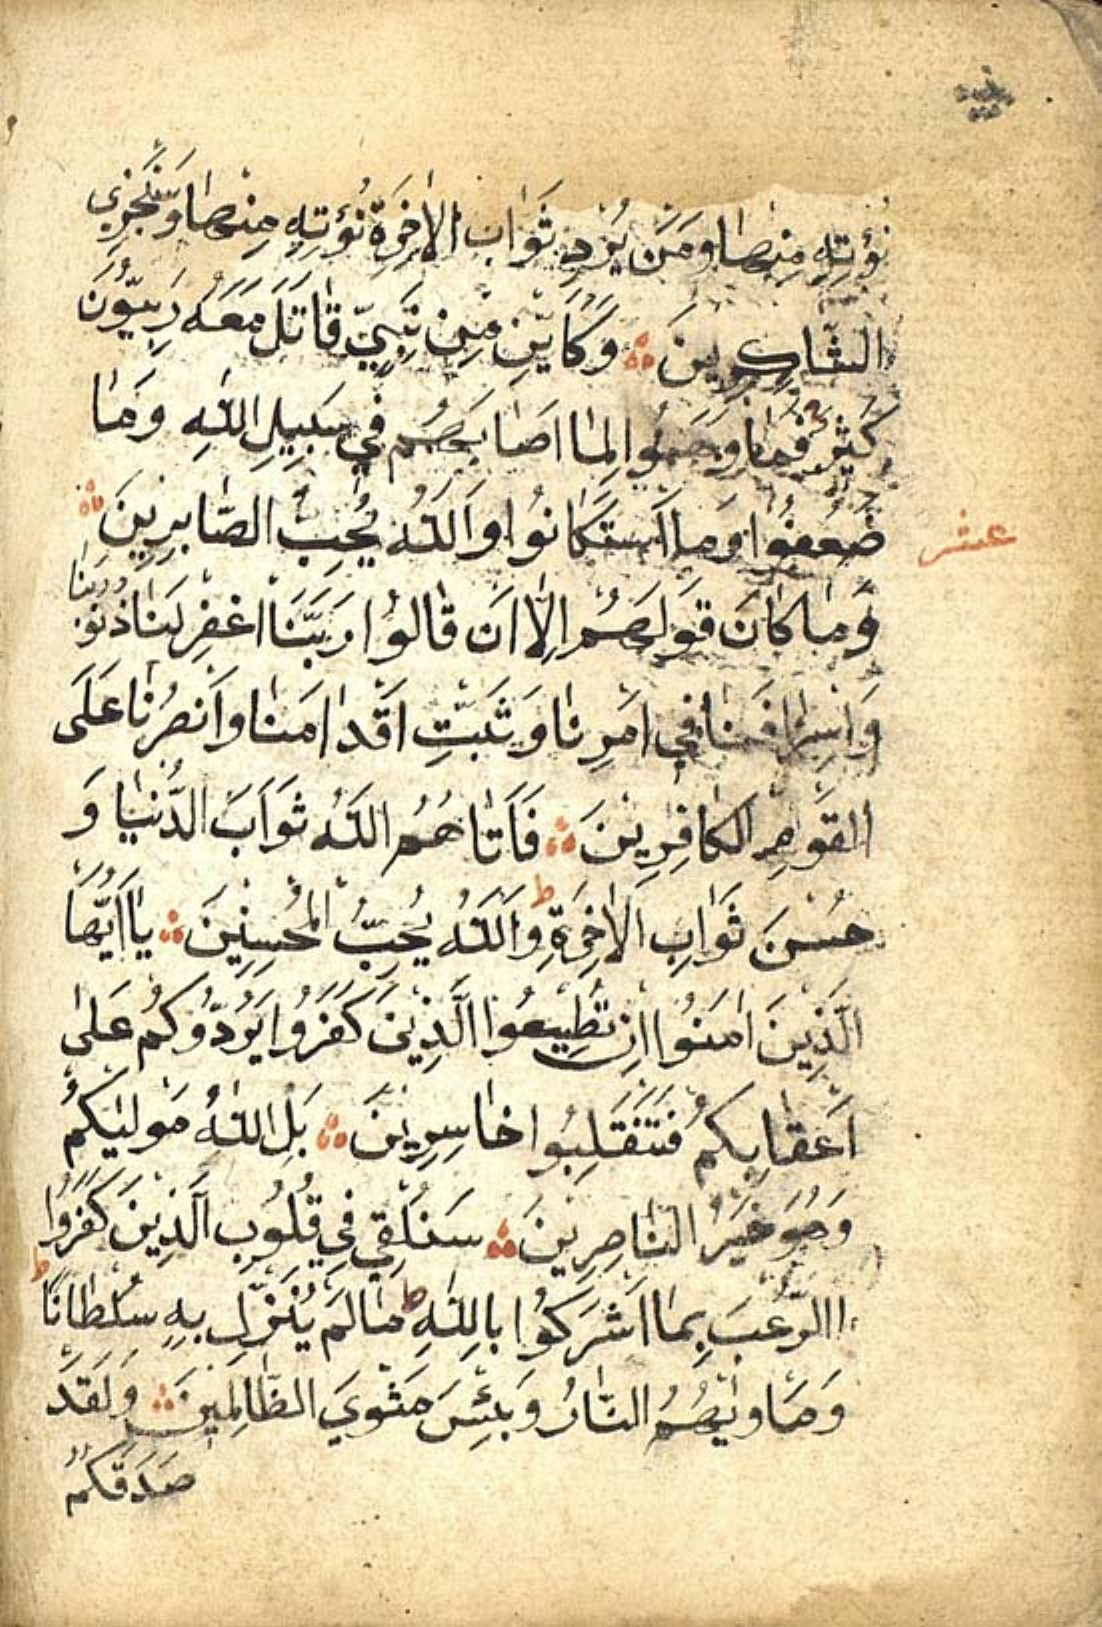 نُؤْتِهِ مِنْهَا وَمَنْ يُرِدْ ثَوَابَ الْاٰخِرَةِ نُؤْتِهِ مِنْهَا وَسَنَجْزِي
الشَّاكِرِينَ ۞ وَكَاَيِّنْ مِنْ نَبِيٍّ قَاتَلَ مَعَهُ رِبِّيُّونَ
كَثِيرٌ فَمَا وَهَنُوا لِمَا اَصَابَهُمْ فِي سَبِيلِ اللّٰهِ وَمَا
ضَعُفُوا وَمَا اسْتَكَانُوا وَاللّٰهُ يُحِبُّ الصَّابِرِينَ ۞
عشر
وَمَا كَانَ قَوْلَهُمْ اِلَّا اَنْ قَالُوا رَبَّنَا اغْفِرْ لَنَا ذُنُوبَنَا
وَاِسْرَافَنَا فِي اَمْرِنَا وَثَبِّتْ اَقْدَامَنَا وَانْصُرْنَا عَلَى
الْقَوْمِ الْكَافِرِينَ ۞ فَاٰتَاهُمُ اللّٰهُ ثَوَابَ الدُّنْيَا وَ
حُسْنَ ثَوَابِ الْاٰخِرَةِ ط وَاللّٰهُ يُحِبُّ الْمُحْسِنِينَ ۞ يَا اَيُّهَا
الَّذِينَ اٰمَنُوا اِنْ تُطِيعُوا الَّذِينَ كَفَرُوا يَرُدُّوكُمْ عَلٰى
اَعْقَابِكُمْ فَتَنْقَلِبُوا خَاسِرِينَ ۞ بَلِ اللّٰهُ مَوْلٰيكُمْ
وَهُوَ خَيْرُ النَّاصِرِينَ ۞ سَنُلْقِي فِي قُلُوبِ الَّذِينَ كَفَرُوا
الرُّعْبَ بِمَا اَشْرَكُوا بِاللّٰهِ مَا لَمْ يُنَزِّلْ بِهِ سُلْطَانًا ط
وَمَاْوٰيهُمُ النَّارُ وَبِئْسَ مَثْوَي الظَّالِمِينَ ۞ وَلَقَدْ
صَدَقَكُمُ